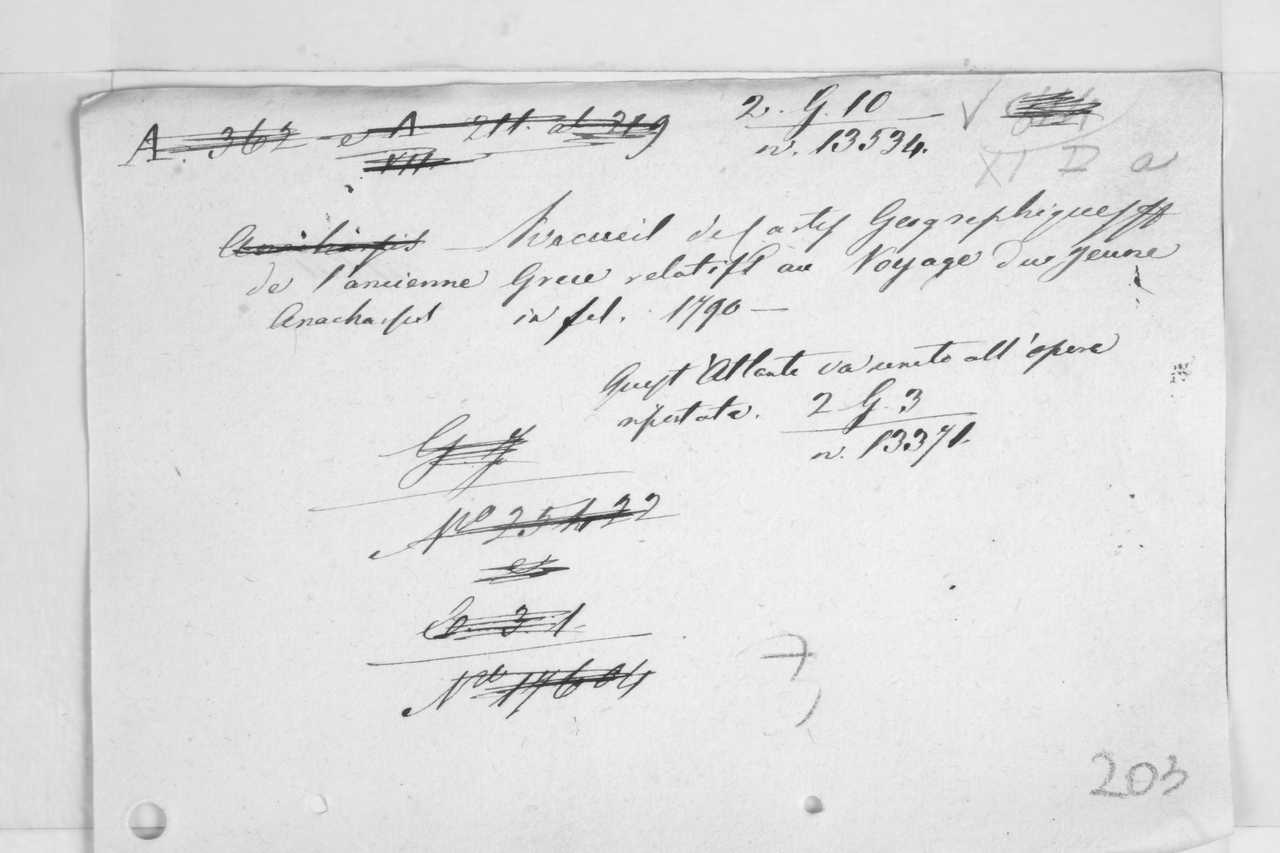 A. 362 e A 211. al 219
VII.
2. G. 10
n. 13534.
XI D a
Anacharsis Recueil de Cartes Geographiques
de l'ancienne Grece relatifs au Voyage du jeune
Anacharsis in fol. 1790 —
Quest'Atlante va unito all'opera
riportata. 2 G. 3
n. 13371.
G. 7
Nro 25422
et
Co. 3. 1
Nro 17604
7
203